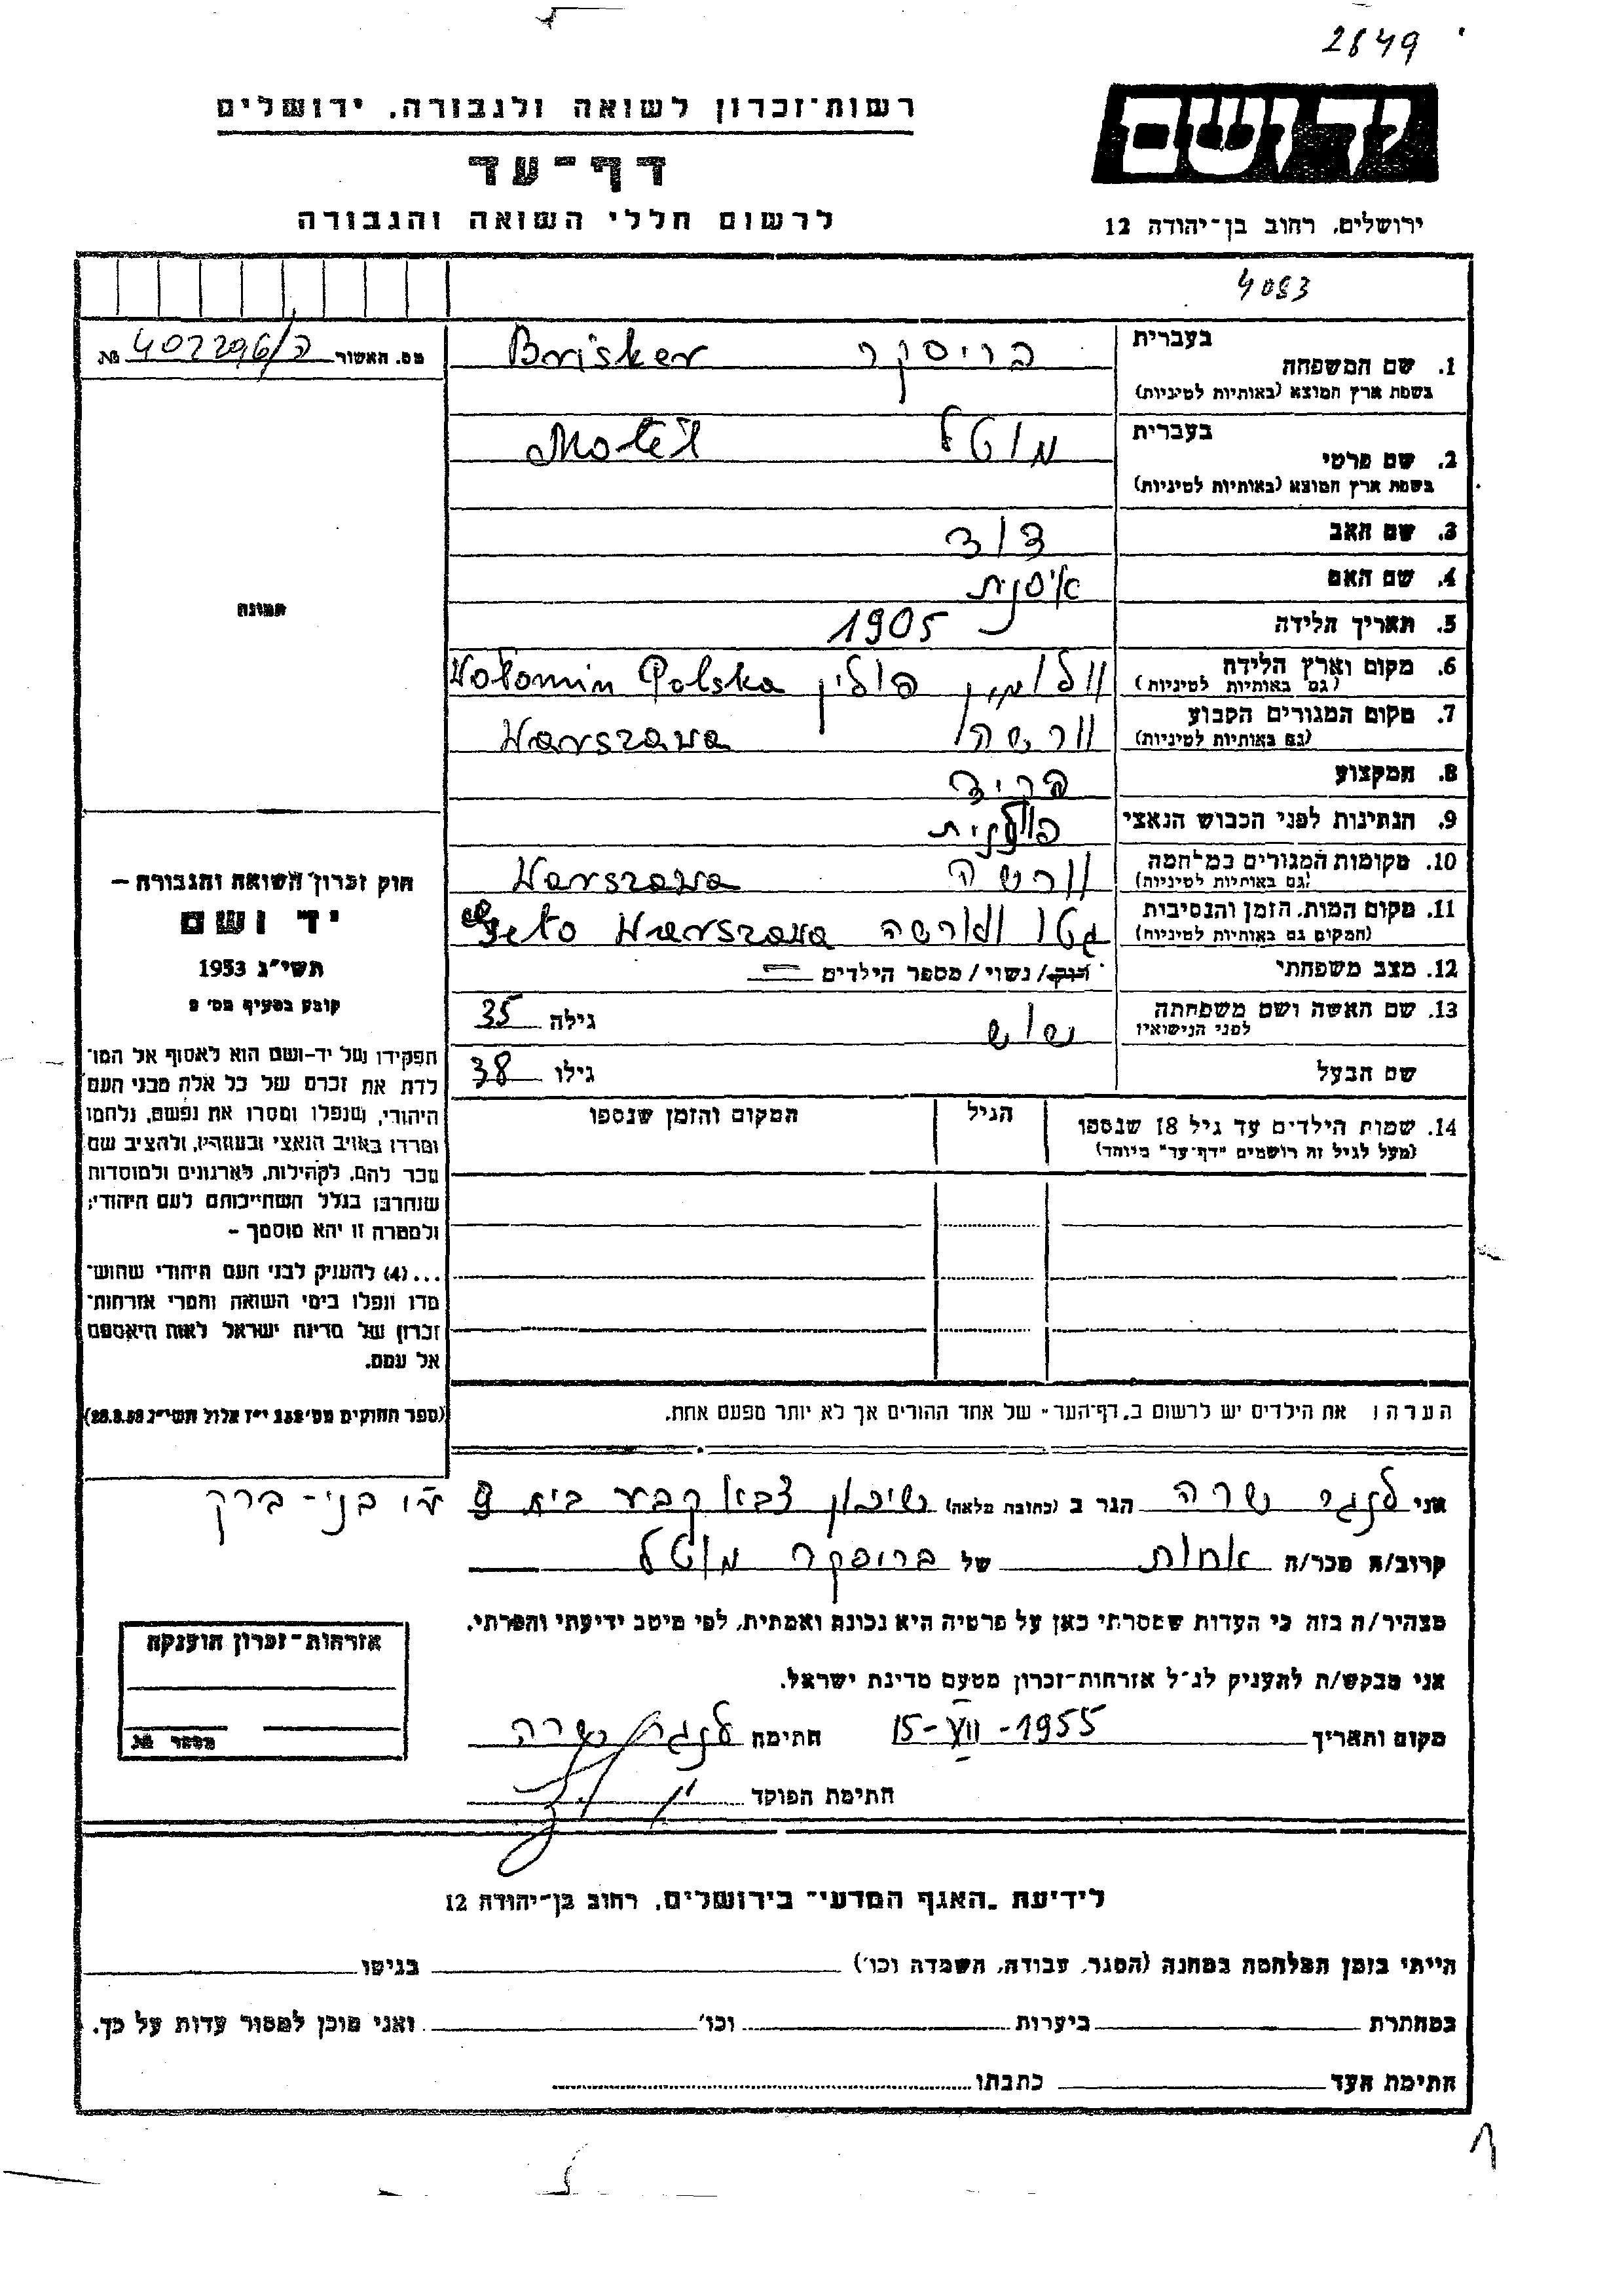 2849
רשות־זכרון לשואה ולגבורה. ירושלים
יד ושם
דף־עד
לרשום חללי השואה והגבורה
ירושלים. רחוב בן־יהודה 12
4083
מס. האשור № 407296/ה
בעברית
1. שם המשפחה בריסקר Brisker
בשפת ארץ המוצא (באותיות לטיניות)
בעברית
2. שם פרטי מוטל Moteil
בשפת ארץ המוצא (באותיות לטיניות)
3. שם האב דוד
4. שם האם
5. תאריך הלידה 1905
6. מקום וארץ הלידה וולומין פולין Wołomin Polska
(גם באותיות לטיניות)
7. מקום המגורים הקבוע וורשה Warszawa
(גם באותיות לטיניות)
8. המקצוע
9. הנתינות לפני הכבוש הנאצי פולנית
10. מקומות המגורים במלחמה וורשה Warszawa
(גם באותיות לטיניות)
11. מקום המות. הזמן והנסיבות גטו וורשה Geto Warszawa
(המקום גם באותיות לטיניות)
12. מצב משפחתי רווק/ נשוי / מספר הילדים
13. שם האשה ושם משפחתה גילה 35
לפני הנישואין
שם הבעל גילו 38
14. שמות הילדים עד גיל 18 שנספו הגיל המקום והזמן שנספו
(מעל לגיל זה רושמים "דף־עד" מיוחד)
הערה: את הילדים יש לרשום ב„דף־העד" של אחד ההורים אך לא יותר מפעם אחת.
תמונה
חוק זכרון השואה והגבורה –
יד ושם
תשי"ג 1953
קובע בסעיף מס' 2
תפקידו של יד–ושם הוא לאסוף אל המו־
לדת את זכרם של כל אלה מבני העם
היהודי, שנפלו ומסרו את נפשם, נלחמו
ומרדו באויב הנאצי ובעוזריו, ולהציב שם
וזכר להם, לקהילות, לארגונים ולמוסדות
שנחרבו בגלל השתייכותם לעם היהודי;
ולמטרה זו יהא מוסמך –
...(4) להעניק לבני העם היהודי שהוש־
מדו ונפלו בימי השואה והמרי אזרחות־
זכרון של מדינת ישראל לאות היאספם
אל עמם.
(ספר החוקים מס' 132 י"ז אלול תשי"ג 28.8.53)
אני לנגר שרה הגר ב (כתובת מלאה) שיכון צבא קבע בית 9 בני-ברק
קרוב/ה מכר/ה אחות של בריסקר מוטל
מצהיר/ה בזה כי העדות שמסרתי כאן על פרטיה היא נכונה ואמתית, לפי מיטב ידיעתי והכרתי.
אני מבקש/ת להעניק לנ"ל אזרחות־זכרון מטעם מדינת ישראל.
מקום ותאריך 15-VII-1955 חתימה לנגר שרה
חתימת הפוקד
אזרחות־זכרון הוענקה
מספר №
לידיעת „האגף המדעי" בירושלים. רחוב בן־יהודה 12
הייתי בזמן המלחמה במחנה (הסגר, עבודה, השמדה וכו') בגיטו
במחתרת ביערות וכו' ואני מוכן למסור עדות על כך.
חתימת העד כתבתו